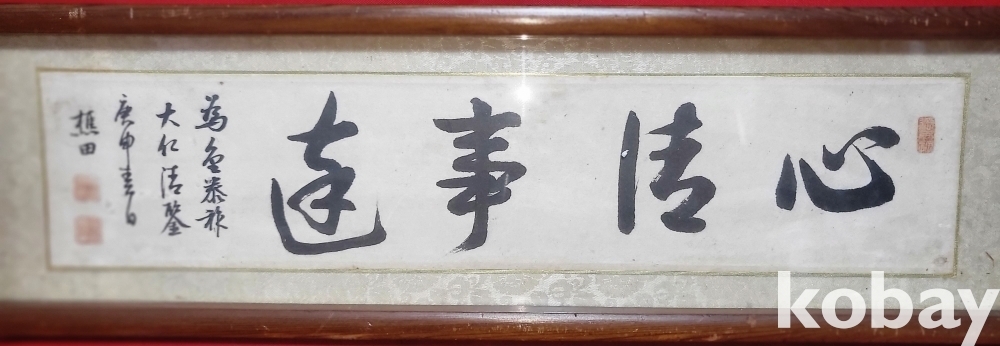 心清事達
為金泰祚
大仁清鑒
庚申春日
樵田
kobay